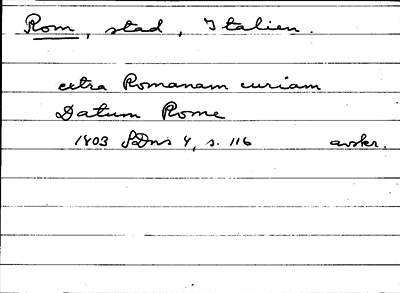 Rom, stad, Italien.
extra Romanam curiam
Datum Rome
1403 SDns 4, s. 116 avskr.